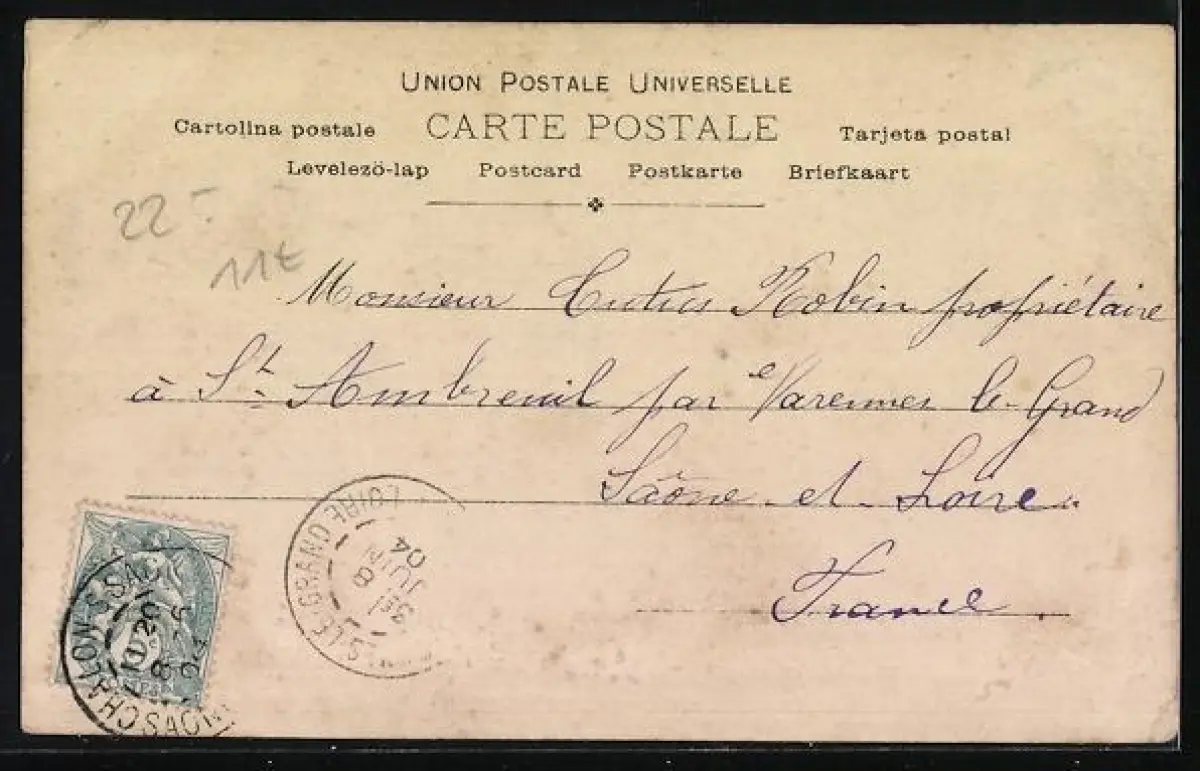 UNION POSTALE UNIVERSELLE
Cartolina postale CARTE POSTALE Tarjeta postal
Levelezö-lap Postcard Postkarte Briefkaart
22-
11€
Monsieur Robin propriétaire
à St. Ambreuil par Varennes le Grand
Saône et Loire.
France.
S-LE-GRAND LOIRE
3E
8
JUIN
04
CHALON-S-SAONE